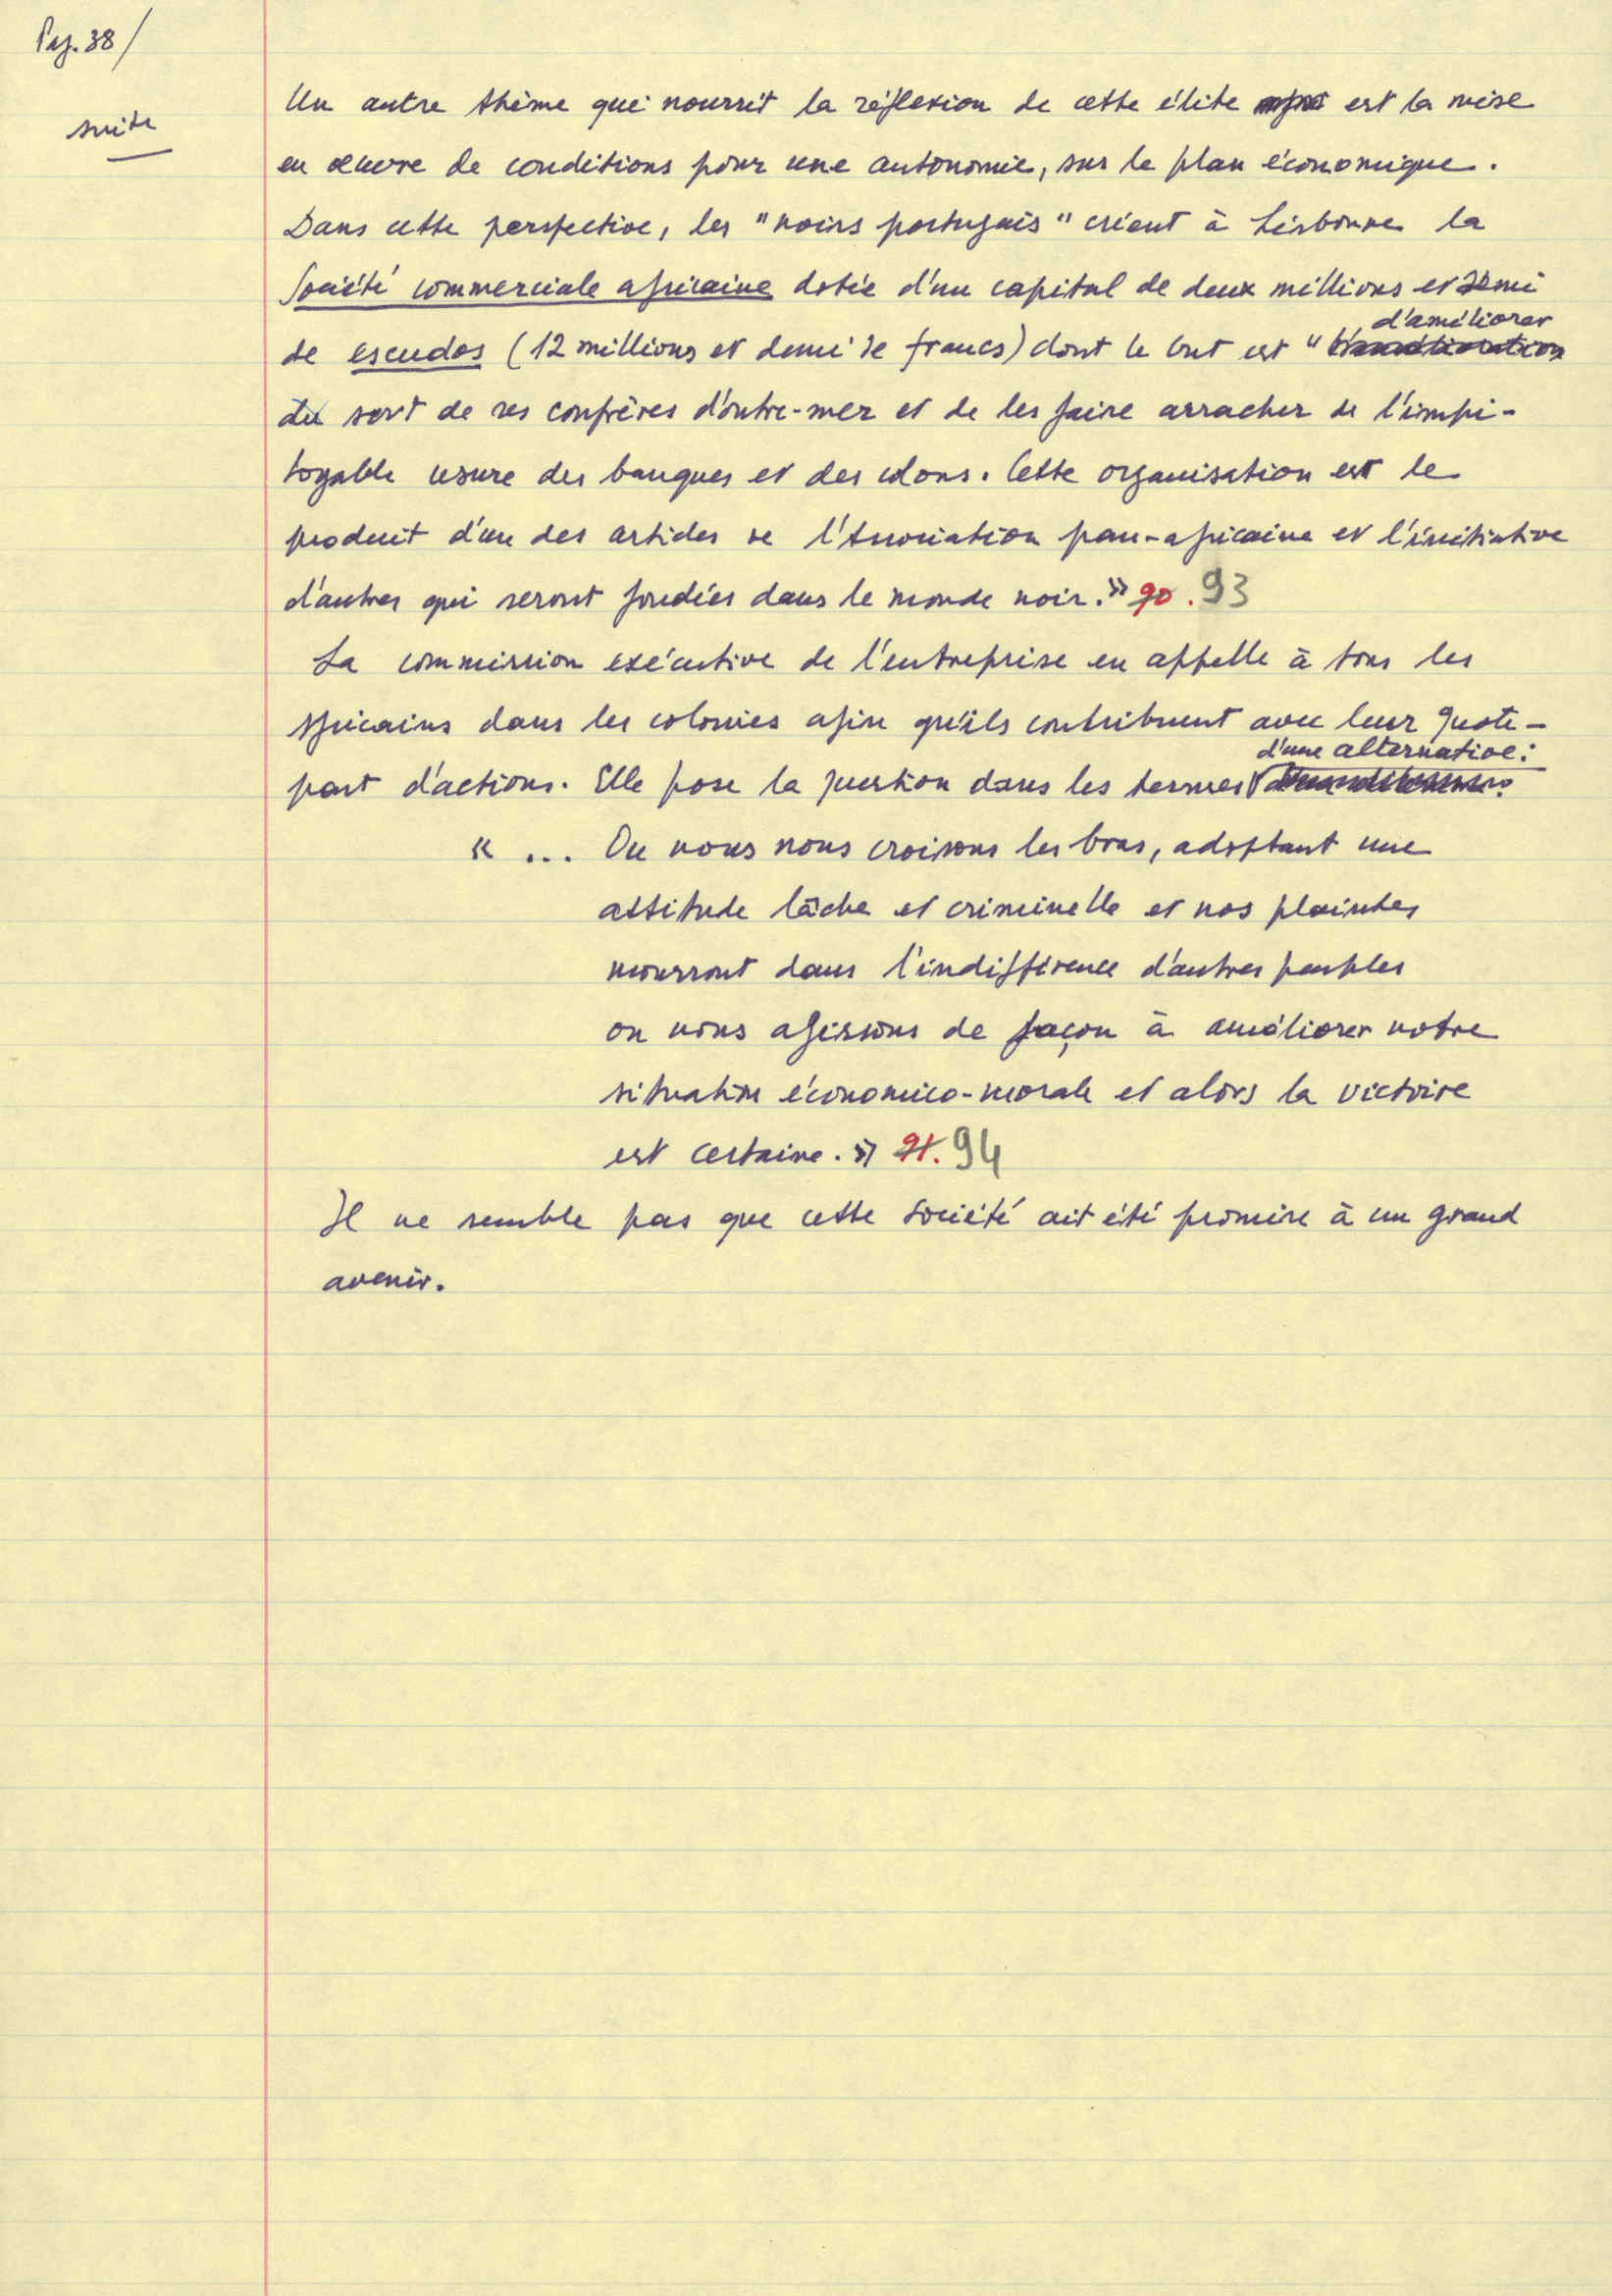 Pag. 38/
suite
Un autre thème qui nourrit la réflexion de cette élite est la mise
en œuvre de conditions pour une autonomie, sur le plan économique.
Dans cette perspective, les "noirs portugais" créent à Lisbonne la
Société commerciale africaine dotée d'un capital de deux millions et demi
d'améliorer
de escudos (12 millions et demi de francs) dont le but est " l'amélioration
du sort de ses confrères d'outre-mer et de les faire arracher de l'impi-
toyable usure des banques et des colons. Cette organisation est le
produit d'un des articles de l'Association pan-africaine et l'initiative
d'autres qui seront fondées dans le monde noir.» 90. 93
La commission exécutive de l'entreprise en appelle à tous les
Africains dans les colonies afin qu'ils contribuent avec leur quote-
d'une alternative:
part d'actions. Elle pose la question dans les termes
« ... Ou nous nous croisons les bras, adoptant une
attitude lâche et criminelle et nos plaintes
mourront dans l'indifférence d'autres peuples
ou nous agissons de façon à améliorer notre
situation économico-morale et alors la victoire
est certaine. » 91. 94
Il ne semble pas que cette société ait été promise à un grand
avenir.